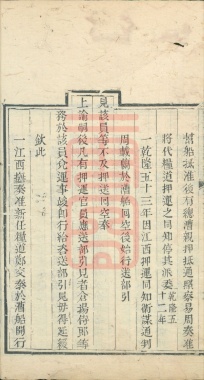 幫船抵淮後有總漕親押抵通照察易周奏准
將代糧道押運之同知停其派委乾隆五十二年
一乾隆五十三年因江西押運同知衛謀通判
周戴驄於漕船回空後始行送部引
見該員等不及押送回空奏
上諭嗣後凡有押運官員應送部引見者倉場侍郎等
務於該員兌運事竣卽行給咨送部引見毋得延緩
欽此
一江西撫奏准新任糧道鄭交泰於漕船開行